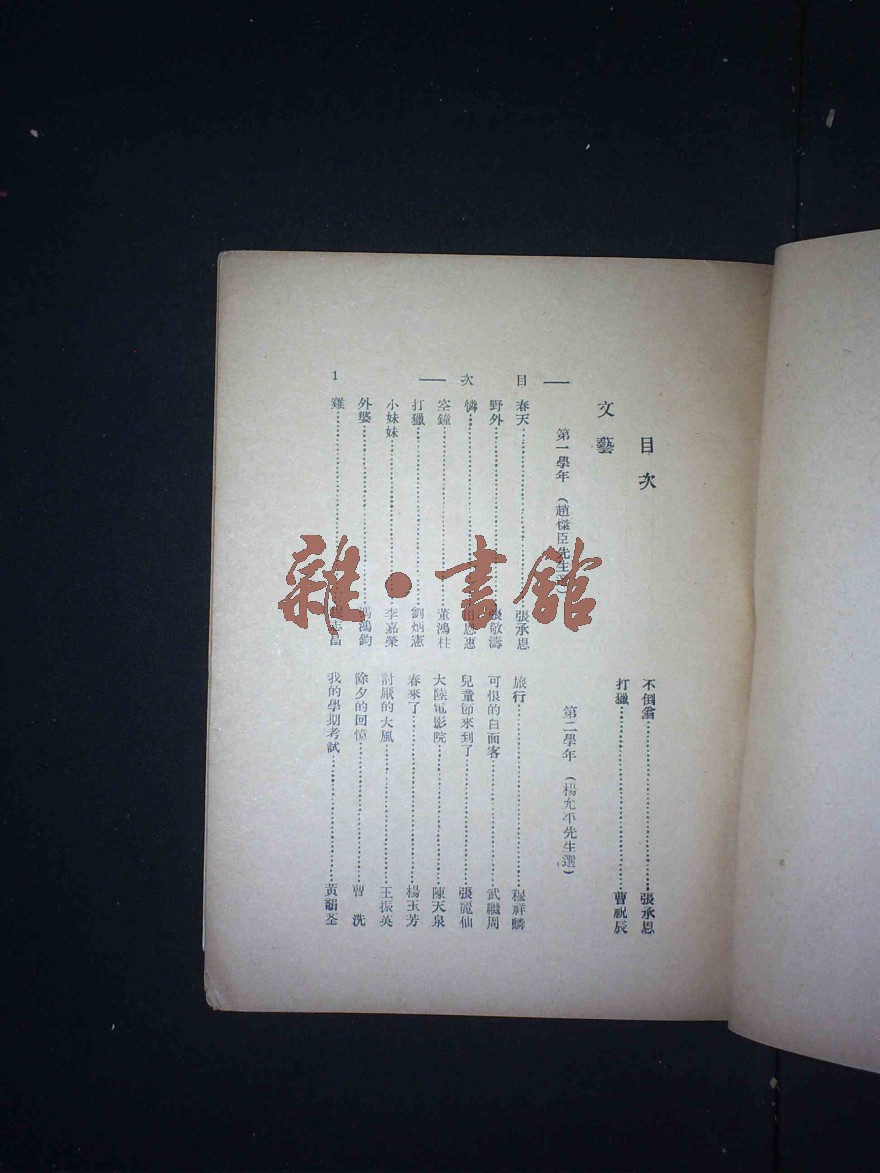 目次
文藝
第一學年（趙臣先生選）
春天……張承恩
野外……張敬濤
憐……恩惠
空鐘……董鴻柱
打獵……劉炳憲
小妹妹……李嘉榮
外婆……馮鴻鈞
雞……志昌
不倒翁……張承恩
打獵……曹祝辰
第二學年（楊允平先生選）
旅行……程祥麟
可恨的白面客……武繼周
兒童節來到了……張麗仙
大陸電影院……陳天泉
春來了……楊玉芳
討厭的大風……王振英
除夕的回憶……曹洗
我的學期考試……黃荃
— 目次 — 1
雜·書館